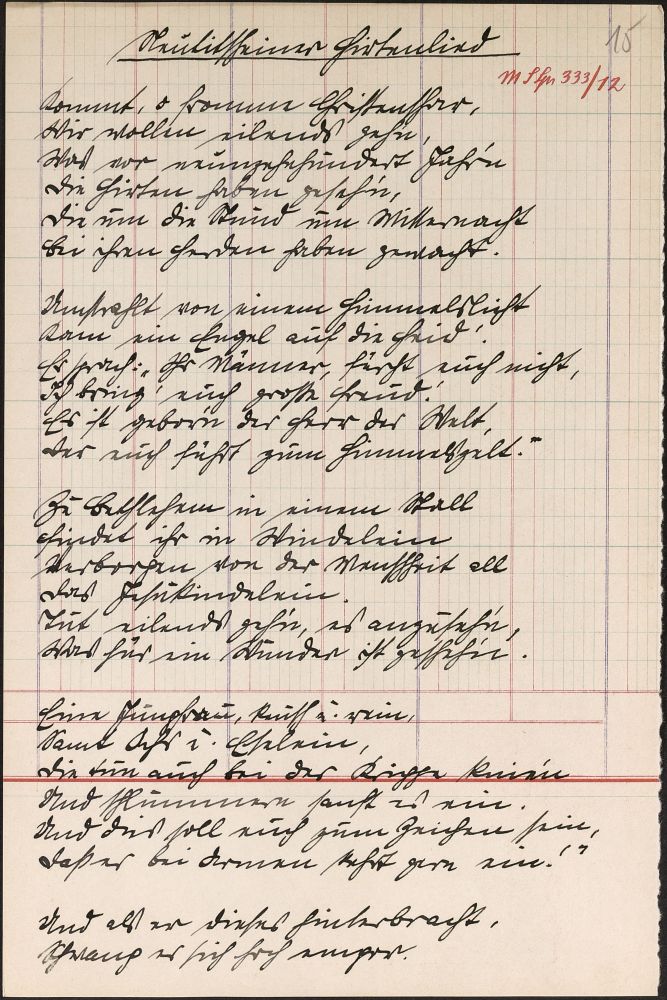 Neutitscheiner Hirtenlied
15
Kommt, o fromme Christenschar,
Wir wollen eilends gehn,
Was vor neunzehnhundert Jahr'n
Die Hirten haben gesehn,
Die um die Stund um Mitternacht
Bei ihren Herden haben gewacht.
Umstrahlt von einem Himmelslicht
Kam ein Engel auf die Heid'.
Er sprach: „Ihr Männer, fürcht euch nicht,
Ich bring' euch große Freud!
Es ist gebor'n der Herr der Welt,
Der euch führt zum Himmelszelt."
Zu Bethlehem in einem Stall
Findet ihr in Windelein
Verborgen von der Menschheit all
Das Jesukindelein.
Tut eilends gehn, es anzusehn,
Was für ein Wunder ist geschehn.
Eine Jungfrau, keusch u. rein,
Samt Ochs u. Eselein,
Die tun auch bei der Krippe knien
Und schlummern sanft es ein.
Und dies soll euch zum Zeichen sein,
Daß er bei Armen kehrt gern ein!"
Und als er dieses hinterbracht,
Schwang er sich hoch empor.